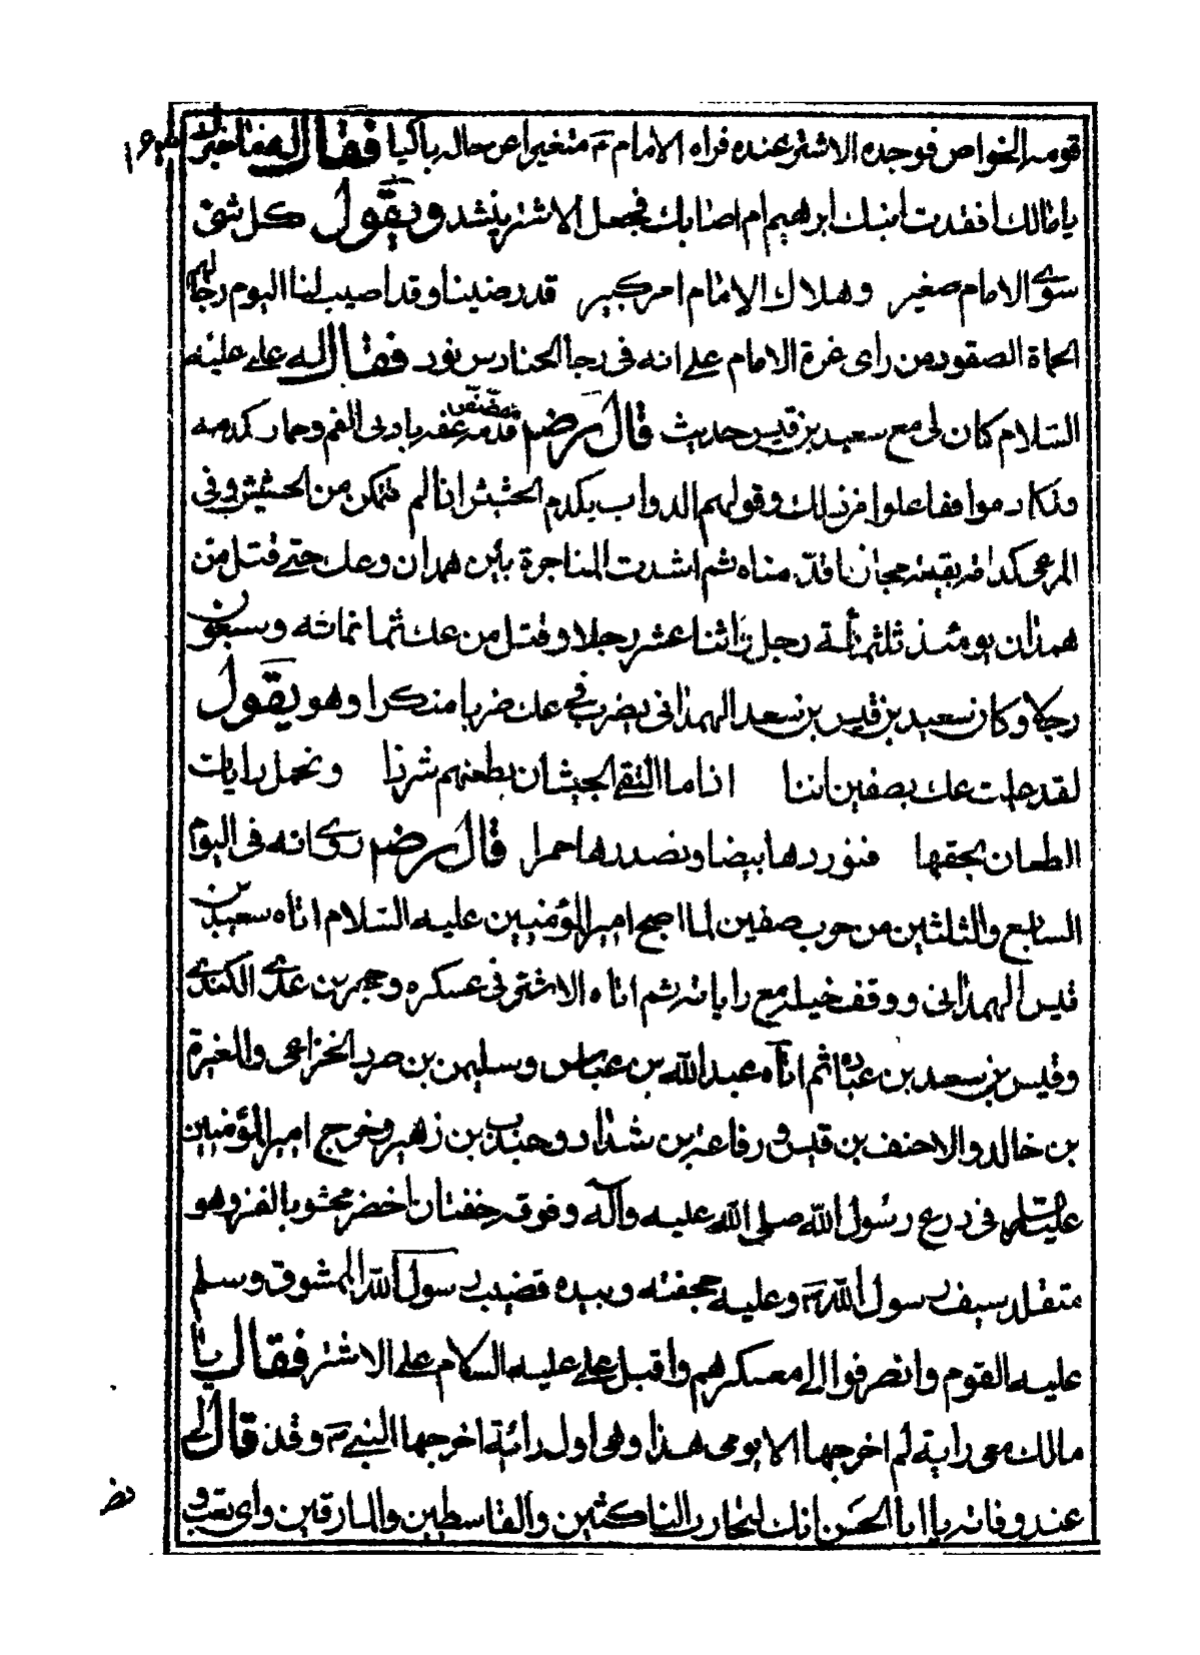 قومه الخواص فوجده الاشتر عنده فراه الامام م متغيرا عن حاله باكيا فقال له
يا مالك افقدت ابنك ابرهيم ام اصابك فجعل الاشتر ينشد ويقول كل شئ
سوى الامام صغير وهلاك الامام امر كبير قد رضينا وقد اصيب لنا اليوم رجال لهم
الحماة الصقور من راى غرة الامام على انه فى دجا الحنادس نور فقال له على عليه
السلام كان لى مع سعيد بن قيس حديث قال رضه باد بى الفم وحمار كدمه
الدواب يكدم الحشيش اذا لم تتمكن من الحشيش وفى
المرعى ثم اشتدت المناجزة بين همدان وعك حتى قتل من
همدان يومئذ ثلثمائة رجل اثنا عشر رجلا وقتل من عك ثمانمائه وسبعون
رجلا وكان سعيد بن قيس بن سعد الهمدانى يضرب فى عك ضربا منكرا وهو يقول
لقد علمت عك بصفين اننا اذا ما التقى الجيشان نطعنهم شزرا ونحمل رايات
الطعان بحقها فنوردها بيضا ونصدرها حمرا قال رضه روى انه فى اليوم
السابع والثلثين من حرب صفين لما اصبح امير المؤمنين عليه السلام اتاه سعيد بن
قيس الهمدانى ووقف خيله مع راياته ثم اتاه الاشتر فى عسكره وحجر بن عدى الكندى
وقيس بن سعد بن عباده ثم اتاه عبد الله بن عباس وسليمن بن صرد الخزاعى والمغيرة
بن خالد والاحنف بن قيس ورفاعة بن شداد وجندب بن زهير وخرج امير المؤمنين
عليه السلم فى درع رسول الله صلى الله عليه وآله وفوقه خفتان اخضر محشو بالقز وهو
متقلد سيف رسول الله م وعليه حجفته وبيده قضيب رسول الله الممشوق وسلم
عليه القوم وانصرفوا الى معسكرهم واقبل على عليه السلام على الاشتر فقال يا
مالك معى راية لم اخرجها الا يومى هذا وهى اول رائية اخرجها النبى م وقد قال لى
عند وفاته يا ابا الحسن انك لتحارب الناكثين والقاسطين والمارقين واى تعب و